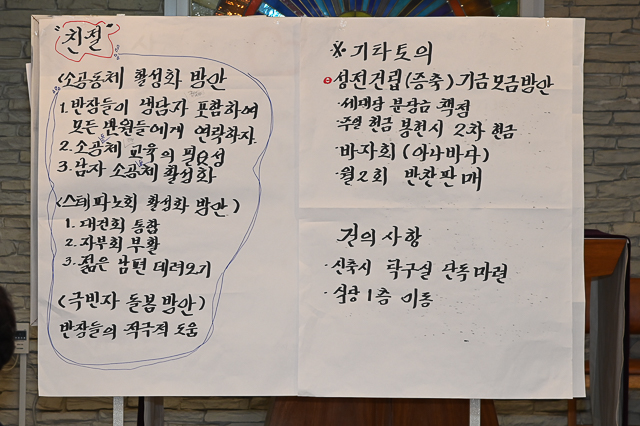 "친절"
<소공동체 활성화 방안>
1. 반장들이 냉담자 포함하여
모든 반원들에게 연락하자.
2. 소공체 교육의 필요성
3. 남자 소공체 활성화
<스테파노회 활성화 방안>
1. 대건회 통합
2. 자부회 부활
3. 젊은 남편 데려오기
(극빈자 돌봄 방안)
반장들의 적극적 도움
※ 기타토의
성전건립(증축)기금모금방안
· 세대당 분담금 책정
· 주일 헌금 봉헌시 2차 헌금
· 바자회 (아나바다)
· 월2회 반찬판매
건의 사항
· 신축시 탁구실 단독마련
· 식당 1층 이동